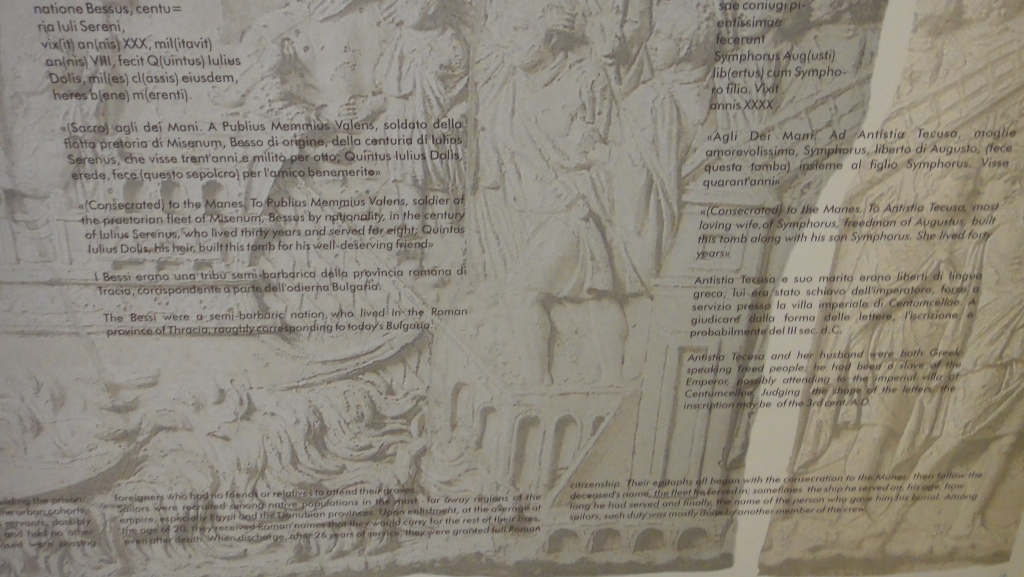 natione Bessus, centu=
ria Iuli Sereni,
vix(it) an(nis) XXX, mil(itavit)
an(nis) VIII, fecit Q(uintus) Iulius
Dolis, mil(es) cl(assis) eiusdem,
heres b(ene) m(erenti).
«(Sacro) agli dei Mani. A Publius Memmius Valens, soldato della
flotta pretoria di Misenum, Besso di origine, della centuria di Iulius
Serenus, che visse trent'anni e militò per otto; Quintus Iulius Dolis,
erede, fece (questo sepolcro) per l'amico benemerito»
«(Consecrated) to the Manes. To Publius Memmius Valens, soldier of
the praetorian fleet of Misenum, Bessus by nationality, in the century
of Iulius Serenus, who lived thirty years and served for eight; Quintus
Iulius Dolis, his heir, built this tomb for his well-deserving friend»
I Bessi erano una tribù semi-barbarica della provincia romana di
Tracia, corrispondente a parte dell'odierna Bulgaria.
The Bessi were a semi-barbaric nation, who lived in the Roman
province of Thracia, roughly corresponding to today's Bulgaria.
sae coniugi pi-
entissimae
fecerunt
Symphorus Aug(usti)
lib(ertus) cum Sympho-
ro filio. Vixit
annis XXXX
«Agli Dei Mani. Ad Antistia Tecusa, moglie
amorevolissima, Symphorus, liberto di Augusto, (fece
questa tomba) insieme al figlio Symphorus. Visse
quarant'anni»
«(Consecrated) to the Manes. To Antistia Tecusa, most
loving wife, of Symphorus, freedman of Augustus, built
this tomb along with his son Symphorus. She lived forty
years»
Antistia Tecusa e suo marito erano liberti di lingua
greca; lui era stato schiavo dell'imperatore, forse a
servizio presso la villa imperiale di Centumcellae. A
giudicare dalla forma delle lettere, l'iscrizione è
probabilmente del III sec. d.C.
Antistia Tecusa and her husband were both Greek
speaking freed people; he had been a slave of the
Emperor, possibly attending to the imperial villa of
Centumcellae. Judging the shape of the letters, the
inscription may be of the 3rd cent. A.D.
building the prison.
the urban cohorts,
servants, possibly
and had no other
were passing
foreigners who had no friends or relatives to attend their graves.
Sailors were recruited among native populations in the most far away regions of the
empire, especially Egypt and the Danubian provinces. Upon enlistment, at the average at
the age of 20, they received Roman names that they would carry for the rest of their lives,
even after death. When discharge, after 26 years of service, they were granted full Roman
citizenship. Their epitaphs all began with the consecration to the Manes, then follow the
deceased's name, the fleet he served in; sometimes the ship he served on, his age, how
long he had served and finally, the name of the person who gave him his burial. Among
sailors, such duty was mostly done by another member of the crew.